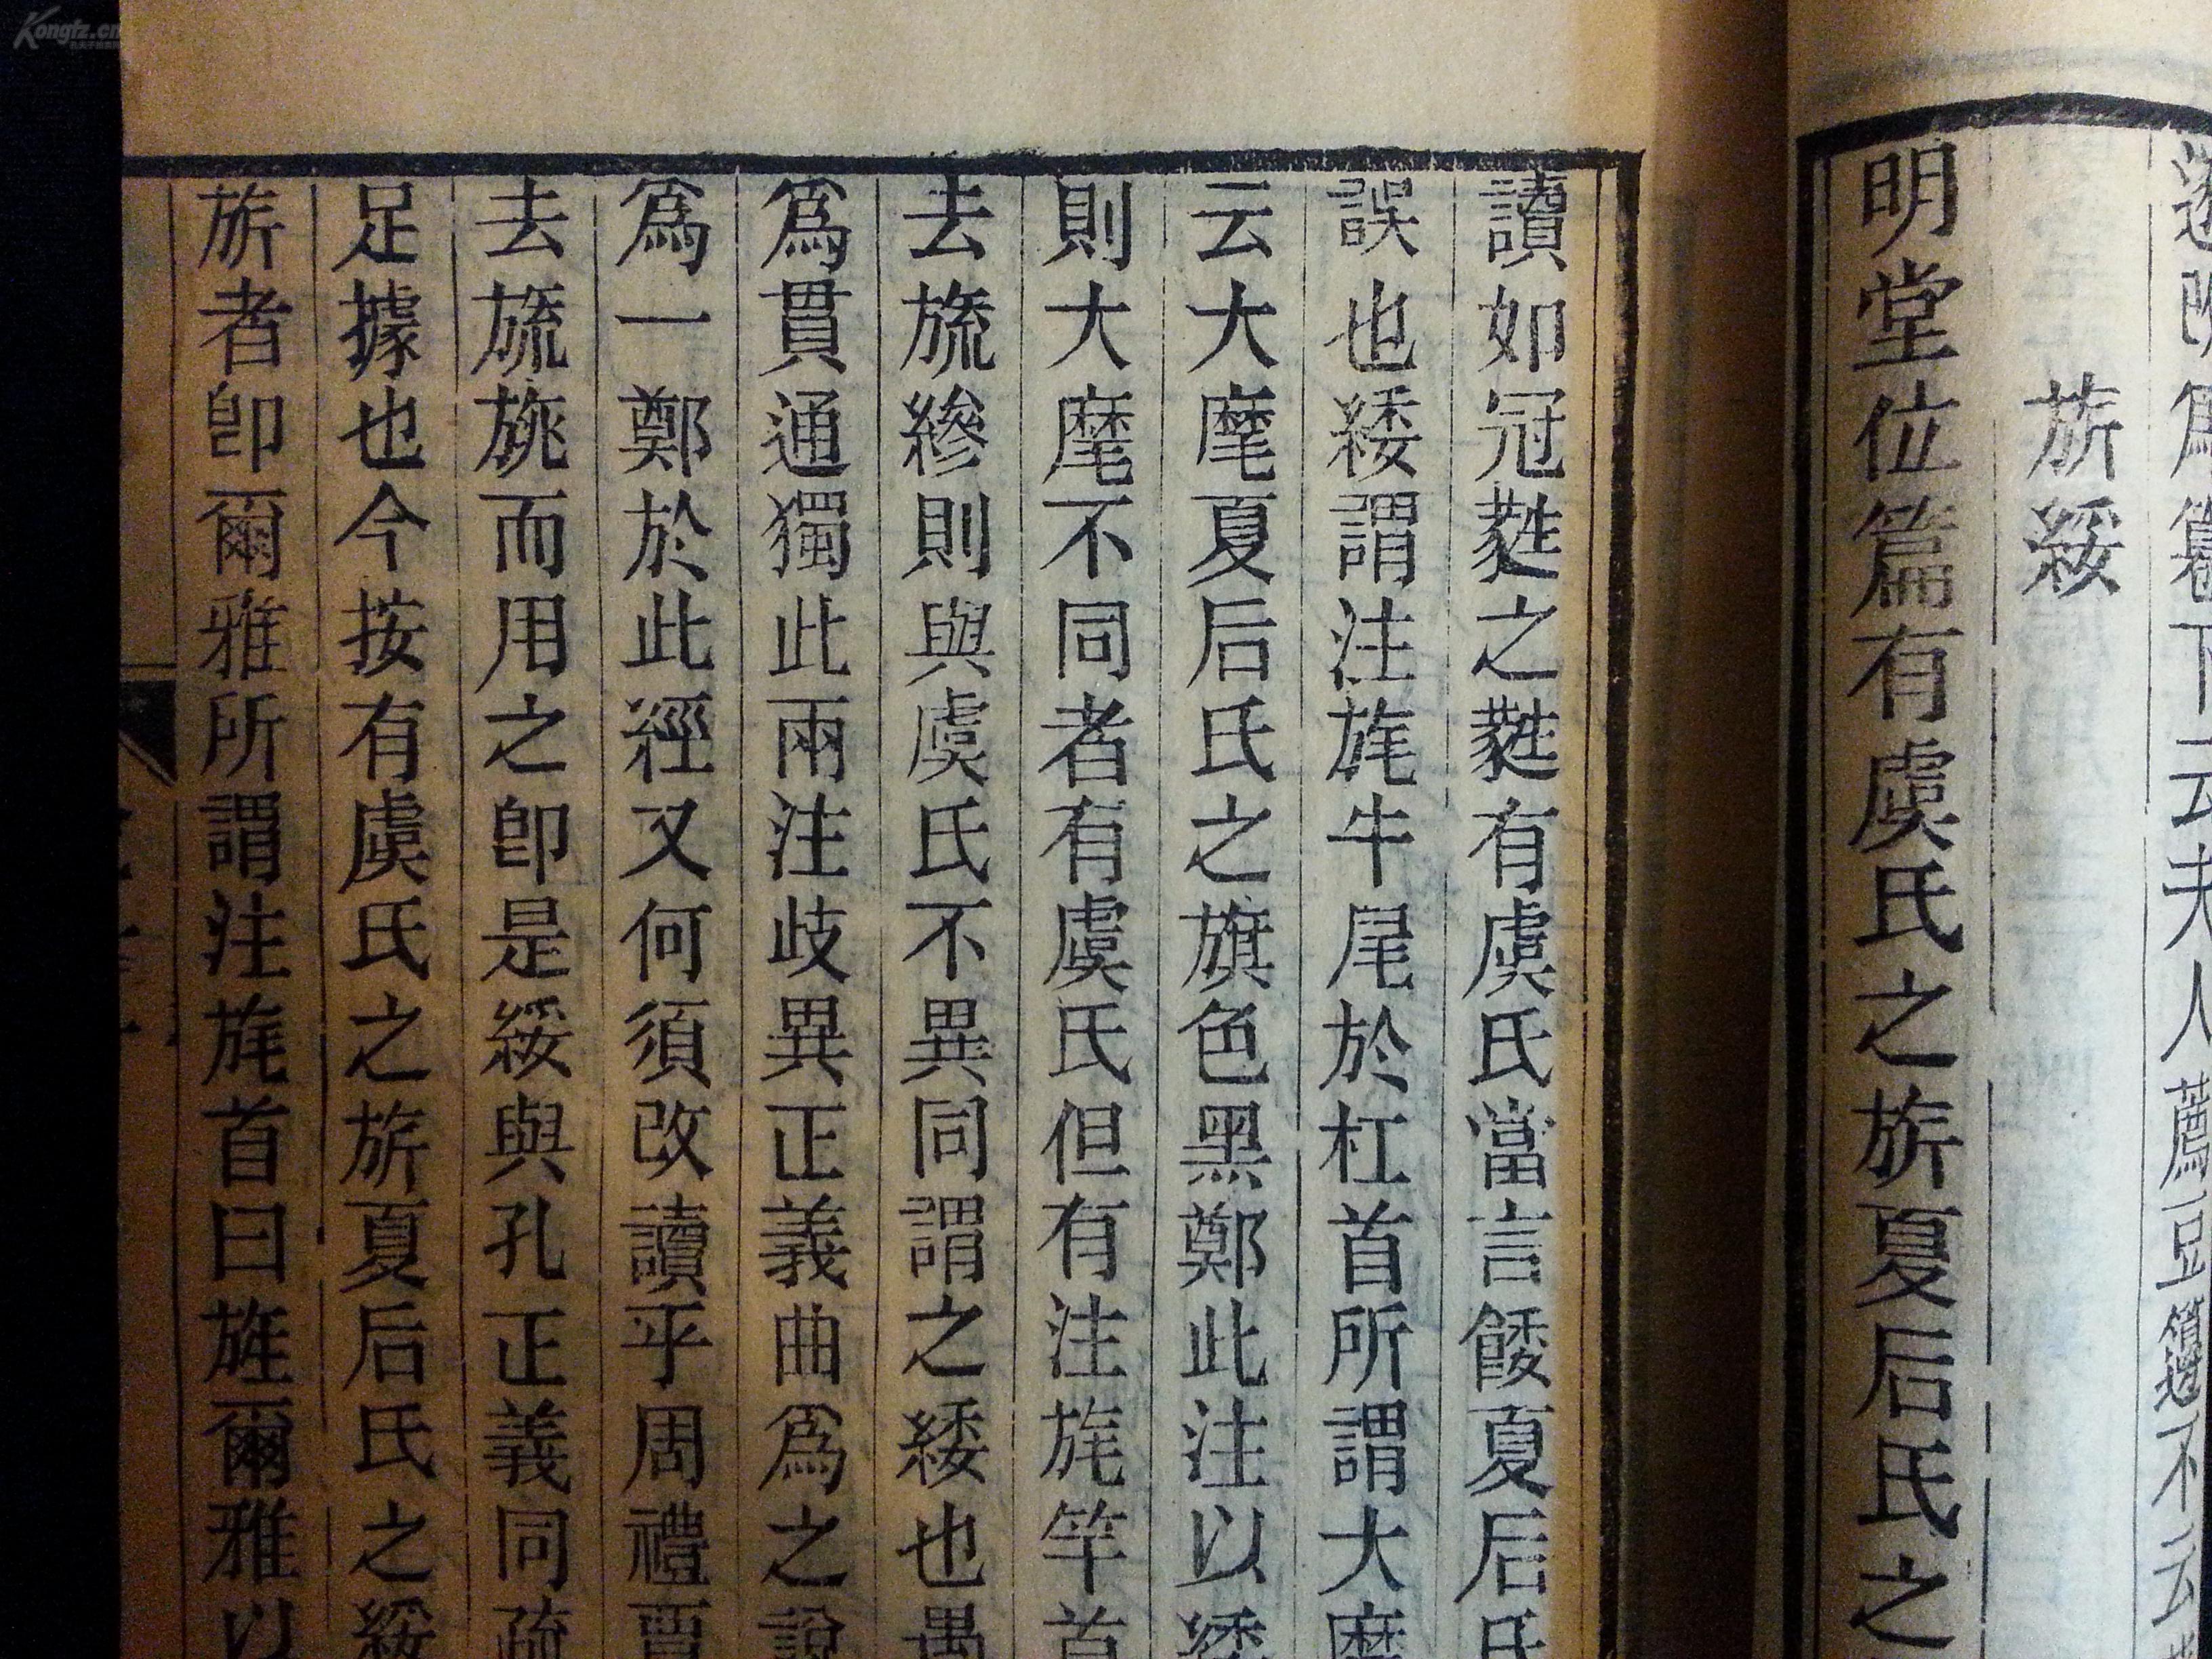 明堂位篇有虞氏之旂夏后氏之
旂綏
讀如冠蕤之蕤有虞氏當言緌夏后氏
誤也緌謂注旄牛尾於杠首所謂大麾
云大麾夏后氏之旗色黑鄭此注以緌
則大麾不同者有虞氏但有注旄竿首
去旒縿則與虞氏不異同謂之緌也愚
爲貫通獨此兩注歧異正義曲爲之說
爲一鄭於此經又何須改讀乎周禮賈
去旒旐而用之卽是綏與孔正義同疏
足據也今按有虞氏之旂夏后氏之綏
旂者卽爾雅所謂注旄首曰旌爾雅以
Kongfz.cn